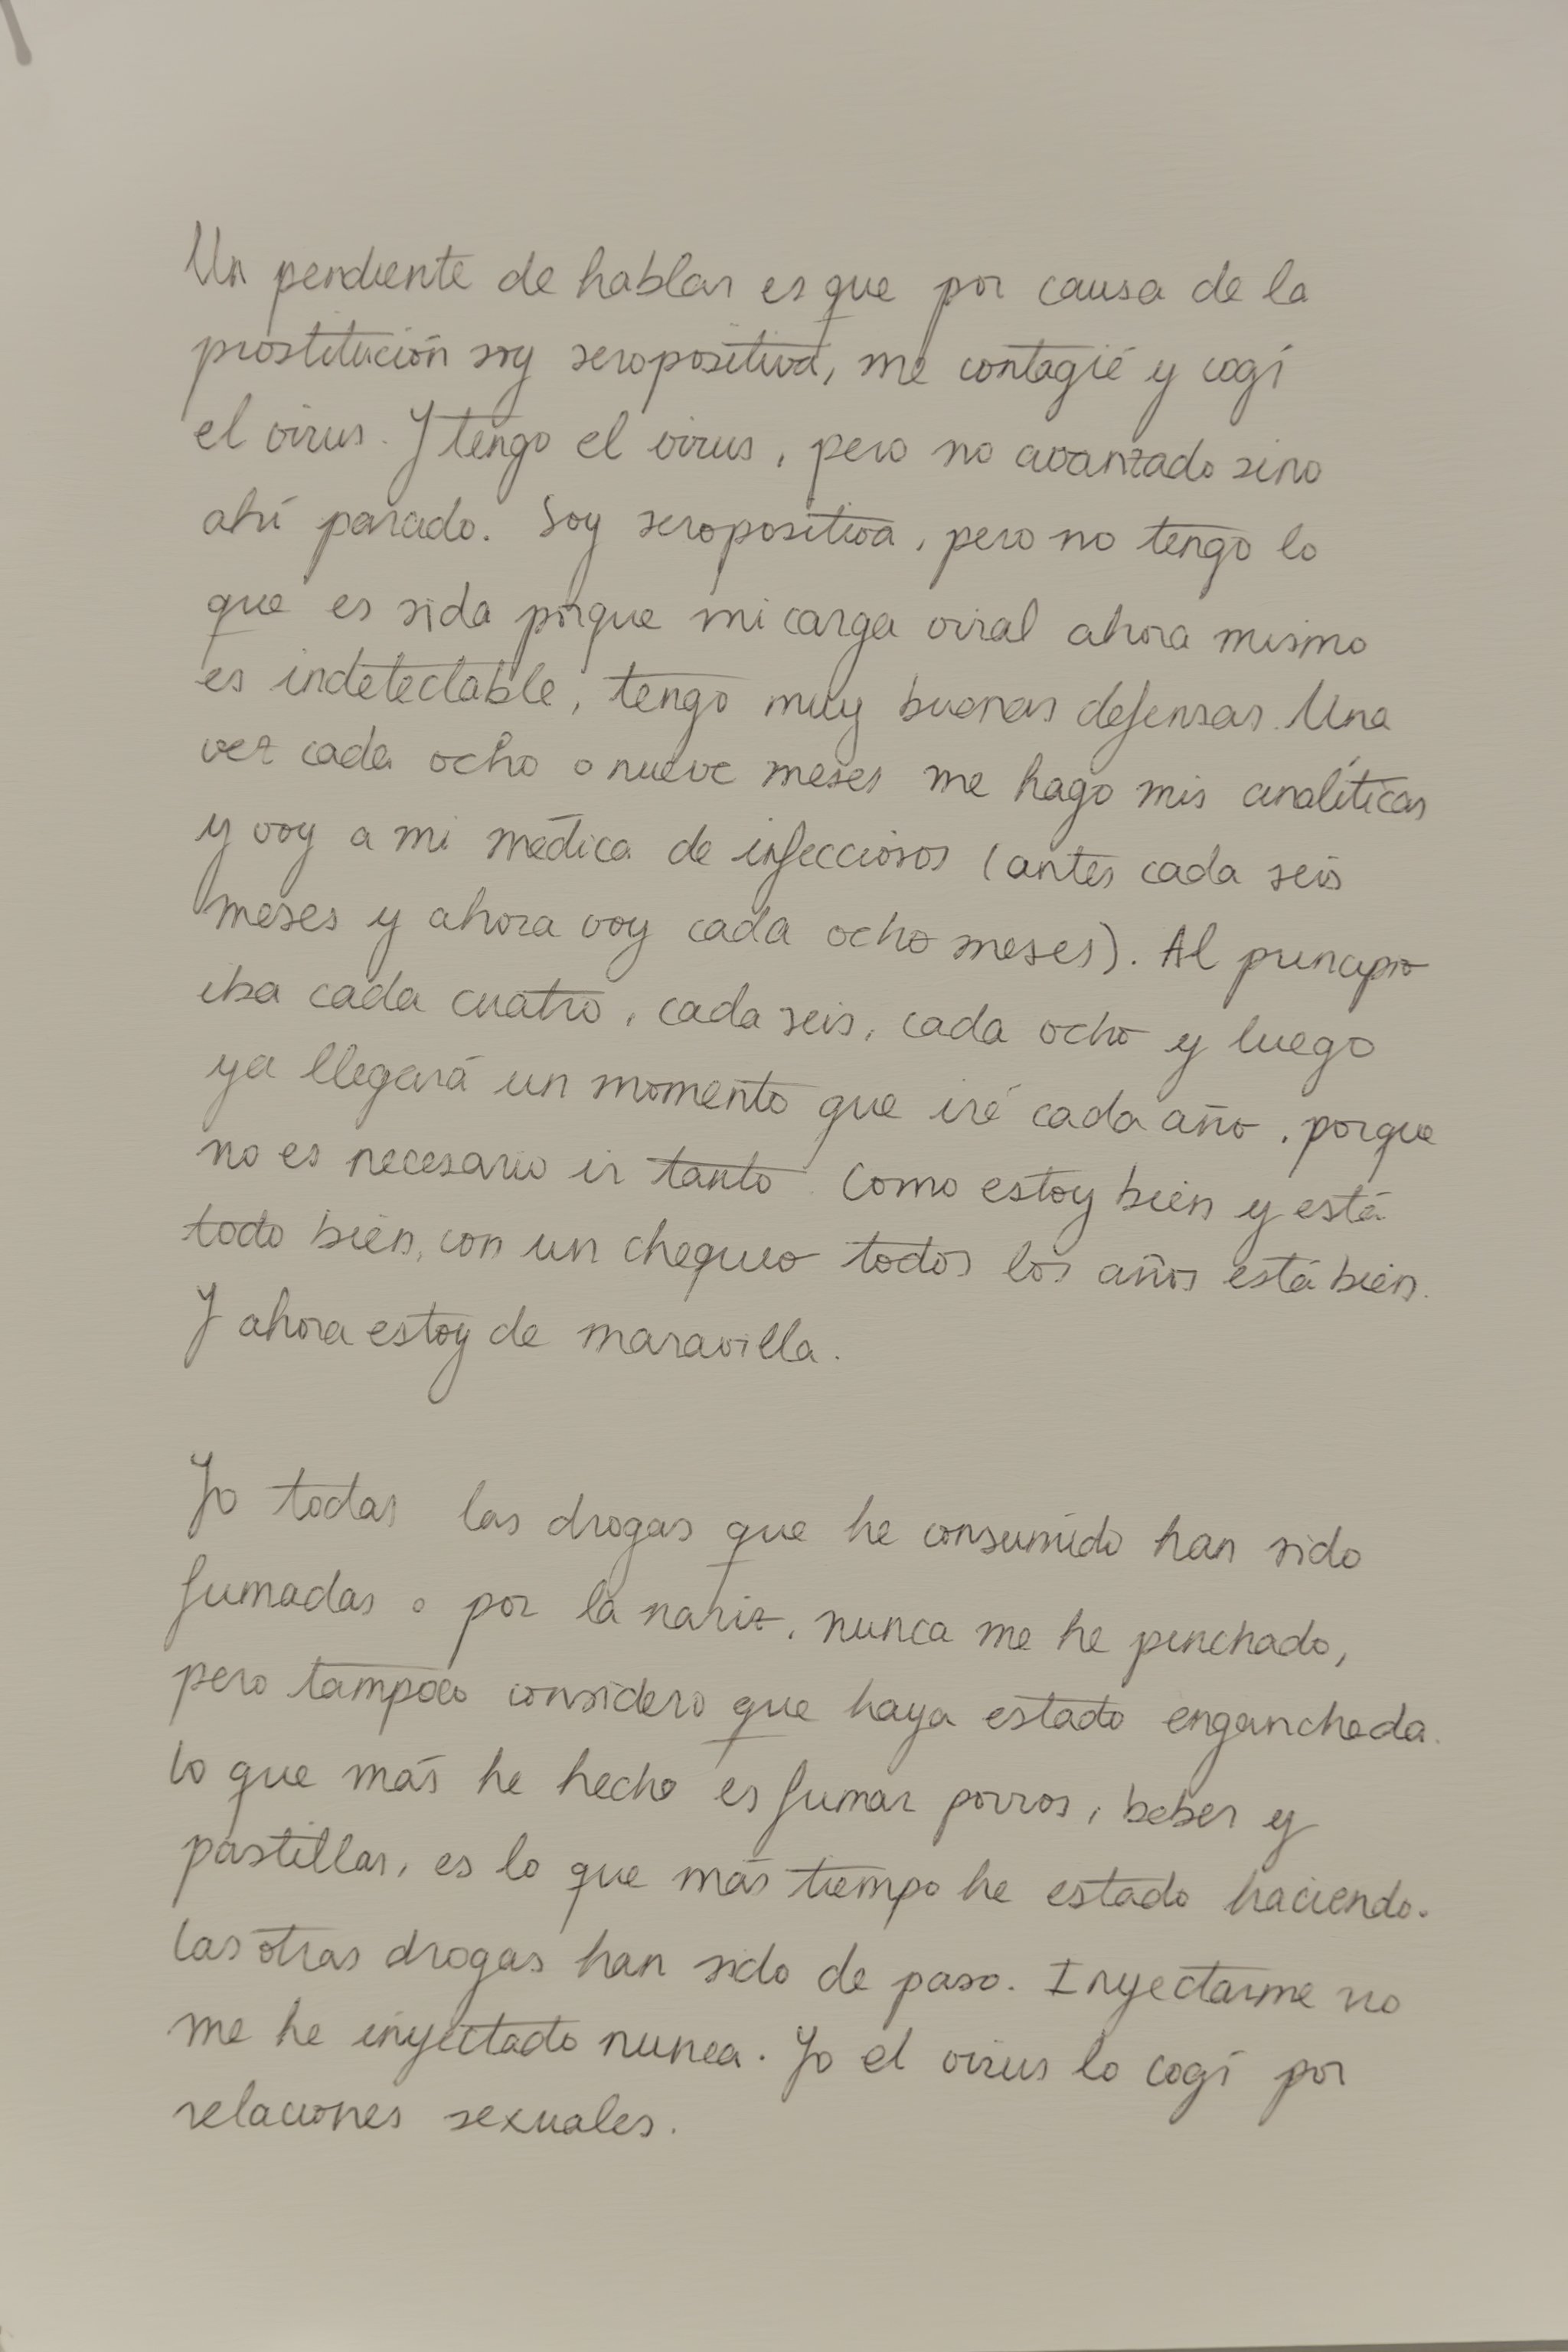 Un pendiente de hablar es que por causa de la
prostitución soy seropositiva, me contagié y cogí
el virus. Y tengo el virus, pero no avanzado sino
ahí parado. Soy seropositiva, pero no tengo lo
que es sida porque mi carga viral ahora mismo
es indetectable, tengo muy buenas defensas. Una
vez cada ocho o nueve meses me hago mis analíticas
y voy a mi médica de infecciosos (antes cada seis
meses y ahora voy cada ocho meses). Al principio
iba cada cuatro, cada seis, cada ocho y luego
ya llegará un momento que iré cada año, porque
no es necesario ir tanto. Como estoy bien y está
todo bien, con un chequeo todos los años está bien.
Y ahora estoy de maravilla.
Yo todas las drogas que he consumido han sido
fumadas o por la nariz, nunca me he pinchado,
pero tampoco considero que haya estado enganchada.
Lo que más he hecho es fumar porros, beber y
pastillas, es lo que más tiempo he estado haciendo.
Las otras drogas han sido de paso. Inyectarme no
me he inyectado nunca. Yo el virus lo cogí por
relaciones sexuales.